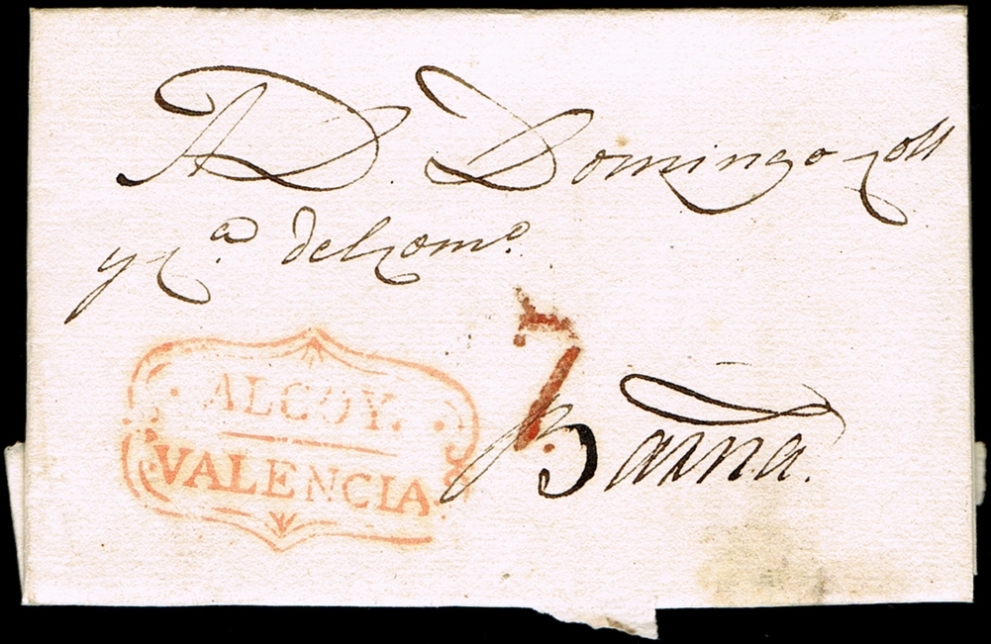 A D. Domingo Coll
y C.ª del Com.º
7
ALCOY.
VALENCIA.
Barna.